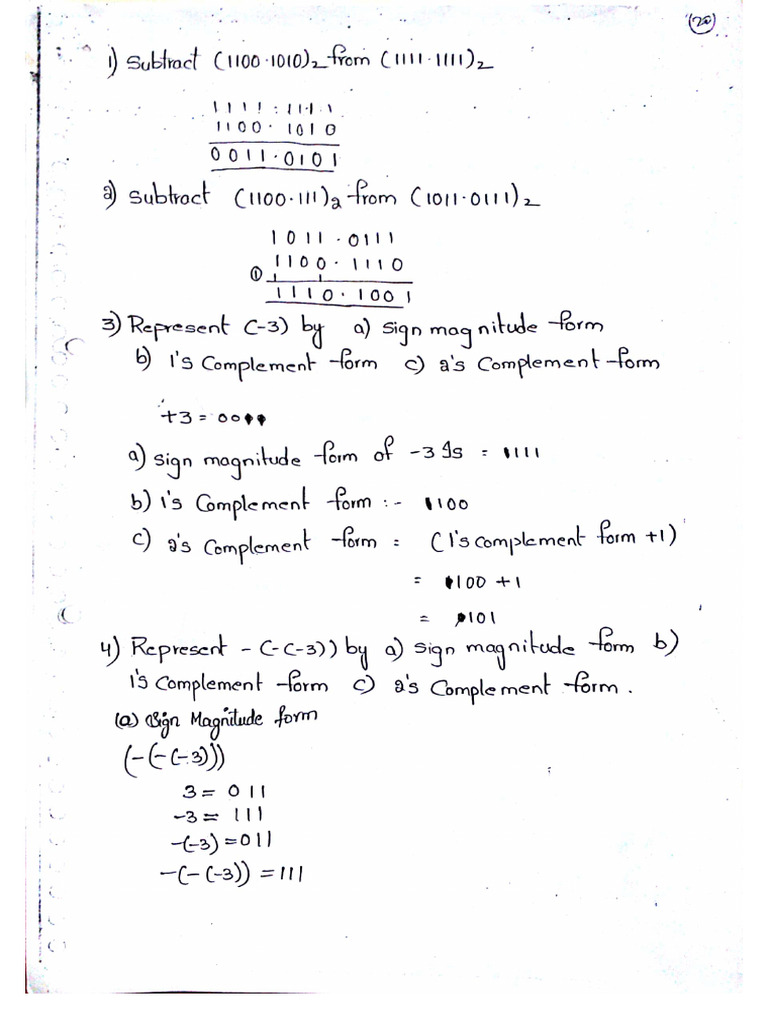 (20)
1) Subtract (1100.1010)2 from (1111.1111)2
1111.1111
1100.1010
0011.0101
2) Subtract (1100.111)2 from (1011.0111)2
1011.0111
1100.1110
① 1 1
1110.1001
3) Represent (-3) by a) sign magnitude form
b) 1's Complement form c) 2's Complement form
+3 = 0011
a) sign magnitude form of -3 Is = 1111
b) 1's Complement form :- 1100
c) 2's Complement form = (1's complement form +1)
= 1100 +1
= 1101
4) Represent -(-(-3)) by a) sign magnitude form b)
1's Complement form c) 2's Complement form.
(a) Sign Magnitude form
(-(-(-3)))
3 = 011
-3 = 111
-(-3) = 011
-(-(-3)) = 111